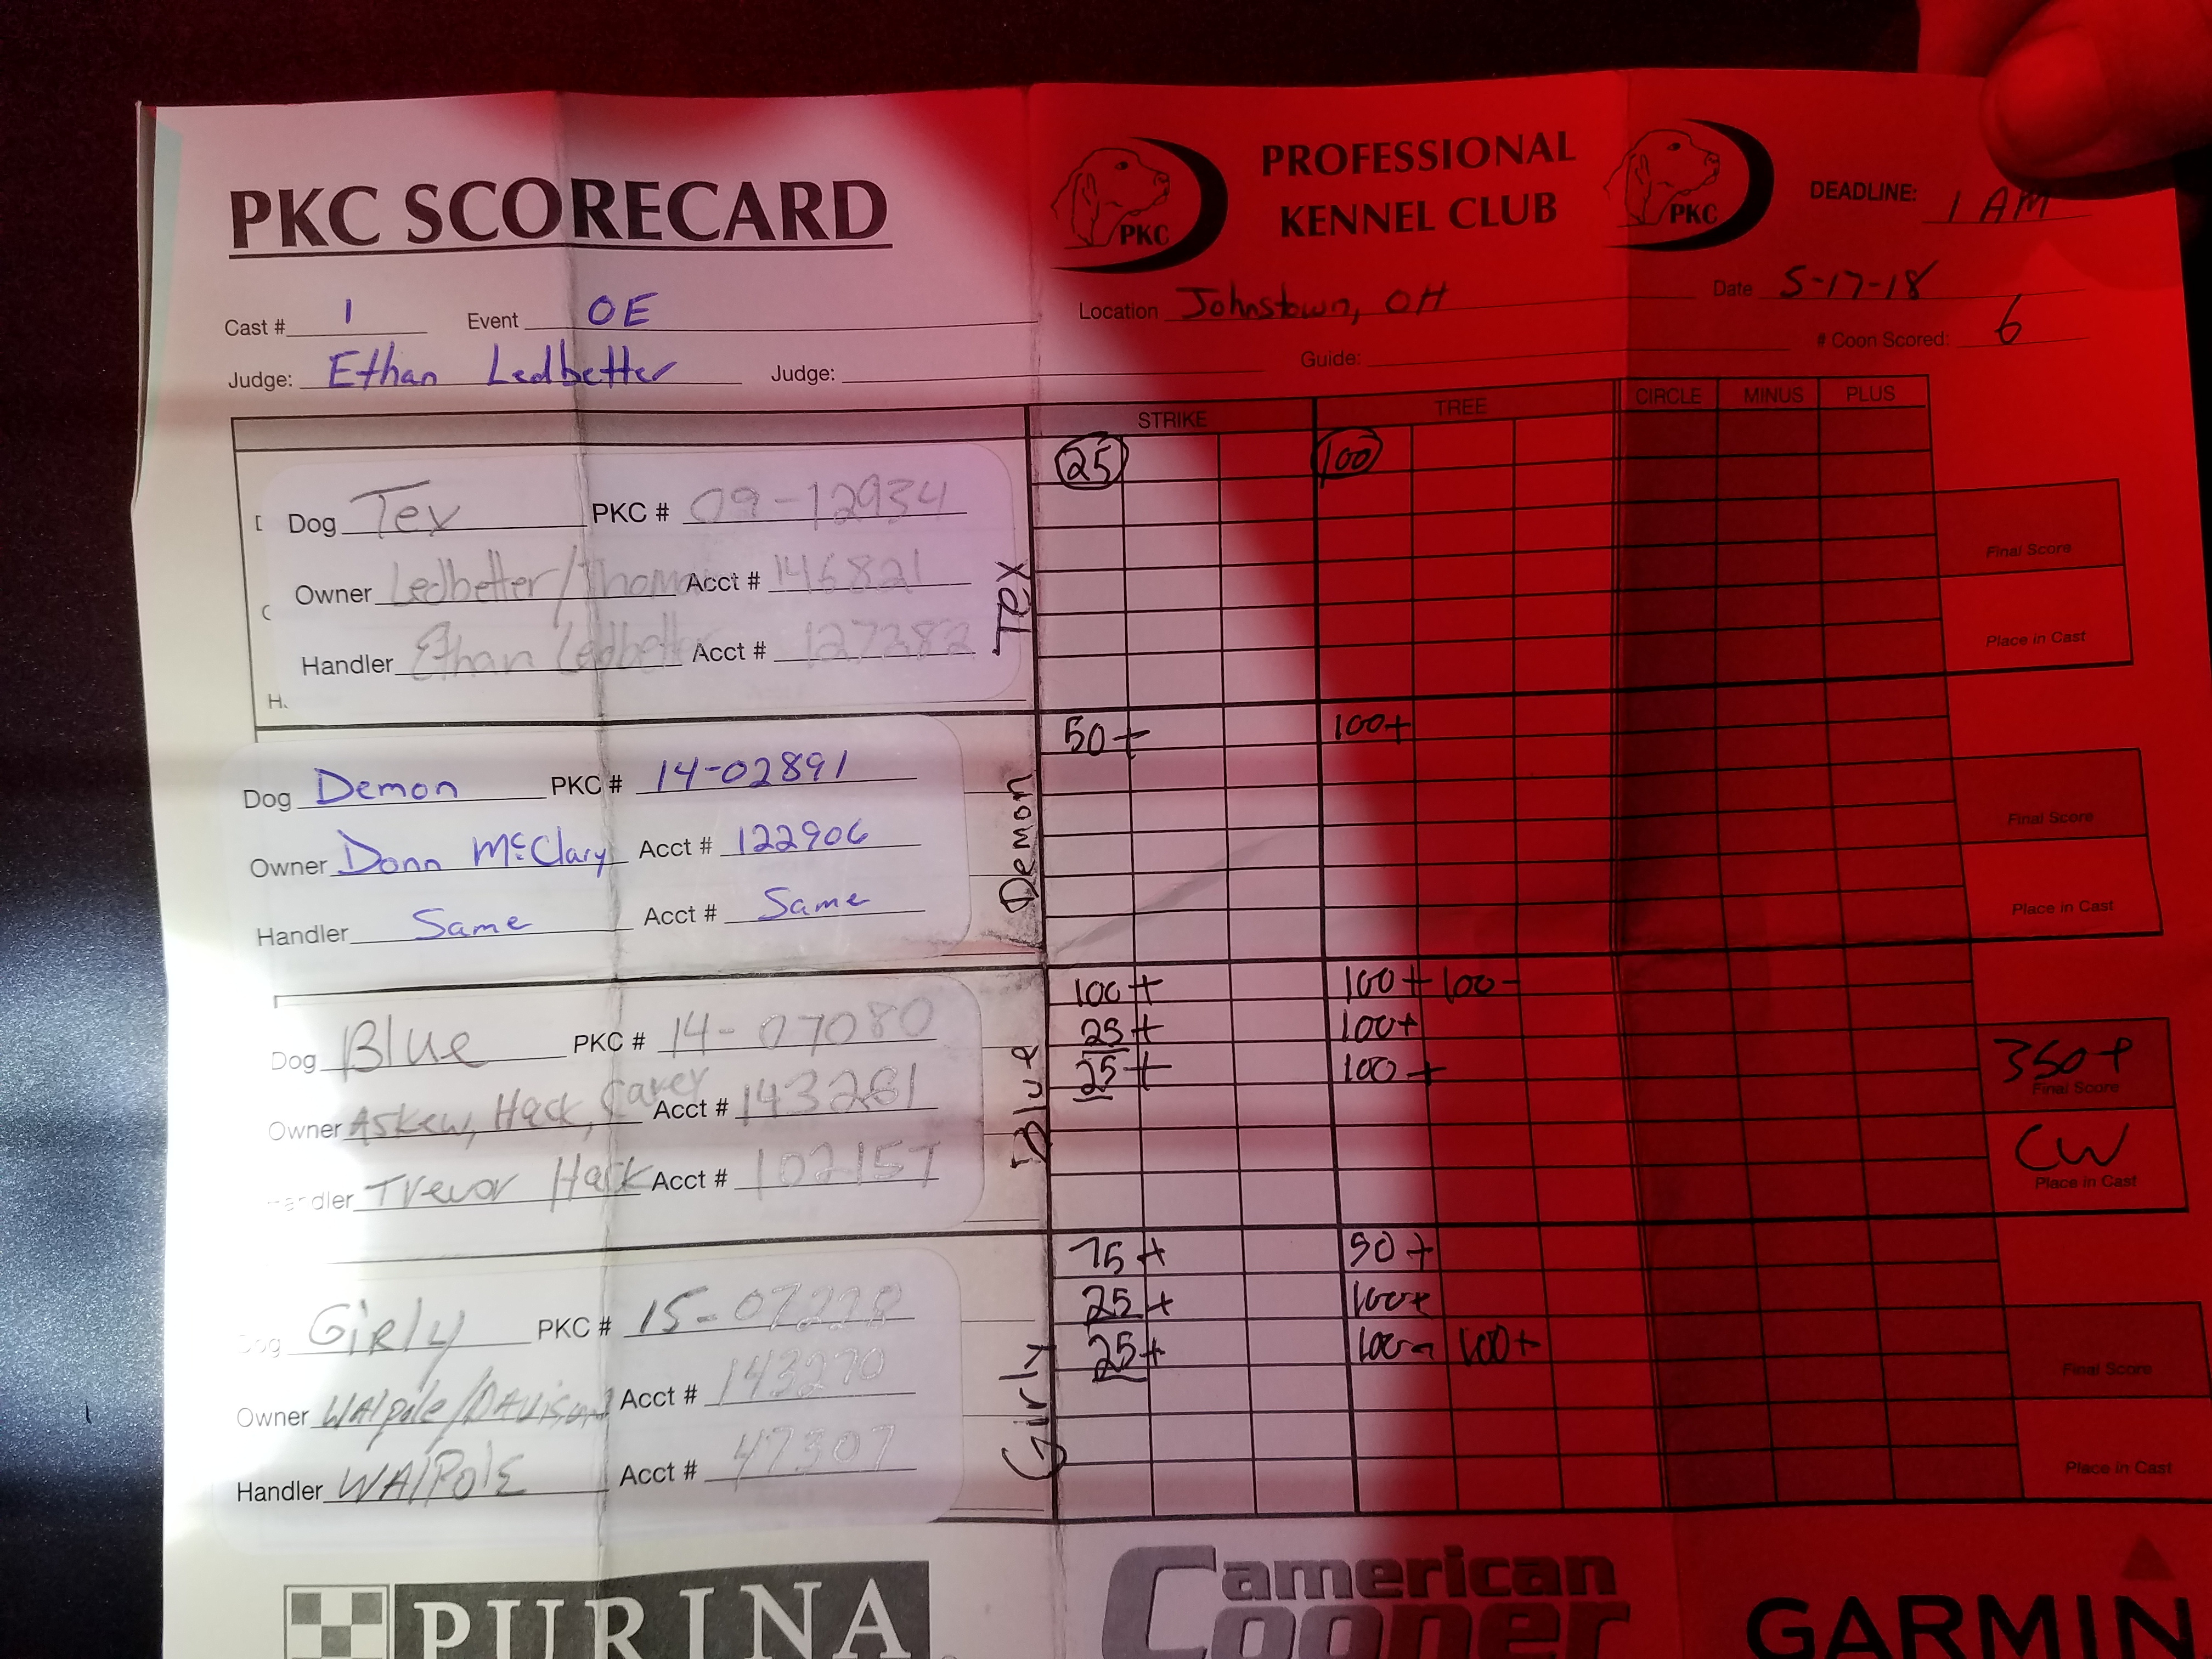 PKC SCORECARD
PKC
PROFESSIONAL
KENNEL CLUB
PKC
DEADLINE: 1 AM
Cast # 1 Event OE
Location Johnstown, OH
Date 5-17-18
Judge: Ethan Ledbetter Judge:
Guide:
# Coon Scored: 6
STRIKE TREE CIRCLE MINUS PLUS
25 100
Dog Tex PKC # 09-12934
Owner Ledbetter/Thomas Acct # 146821
Handler Ethan Ledbetter Acct # 127282
H.
Tex
Final Score
Place in Cast
50+ 100+
Dog Demon PKC # 14-02891
Owner Donn McClary Acct # 122906
Handler Same Acct # Same
Demon
Final Score
Place in Cast
100+ 100+ 100-
25+ 100+
25+ 100+
Dog Blue PKC # 14-07080
Owner Askew, Hack, Carey Acct # 143281
Handler Trevor Hack Acct #
Blue
350+
Final Score
CW
Place in Cast
75+ 50+
25+ 100+
25+ 100- 100+
Dog Girly PKC # 15-07228
Owner Walpole/Davison Acct # 143270
Handler WAlPolE Acct # 47307
Girly
Final Score
Place in Cast
PURINA
american
Cooner
GARMIN